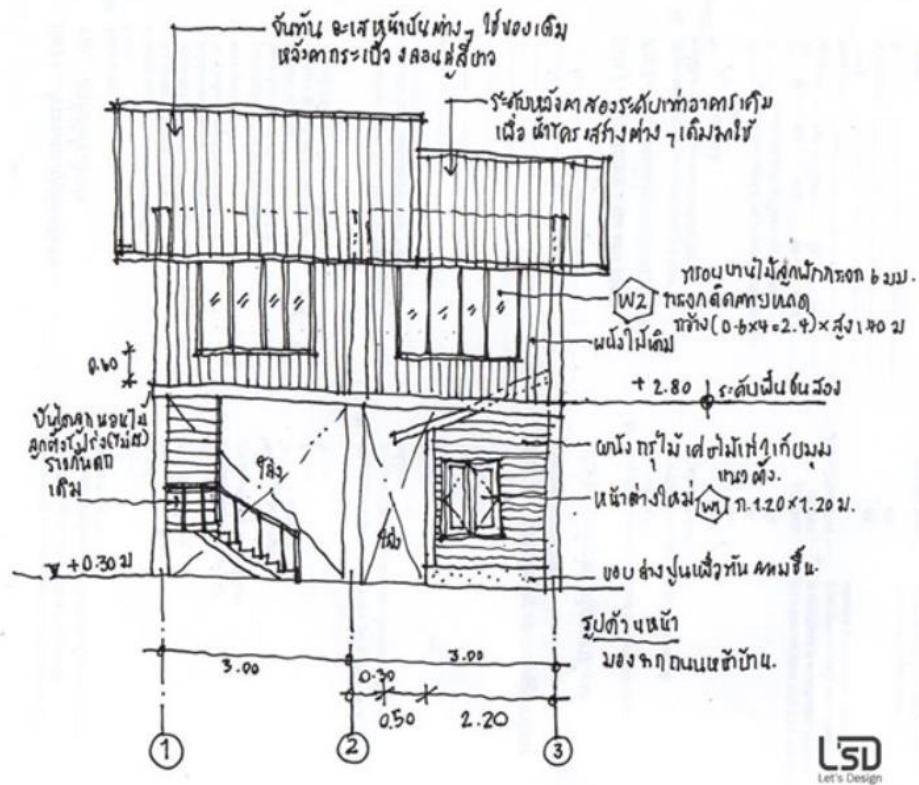 จันทัน อะเส หน้าบันต่างๆ ใช้ของเดิม
หลังคากระเบื้องลอนคู่สีขาว
ระดับหลังคาสองระดับเท่าอาคารเดิม
เพื่อนำโครงสร้างต่างๆ เดิมมาใช้
กรอบบานไม้ลูกฟักกระจก 6 มม.
W2
กระจกติดตายหมด
กว้าง (0.6x4=2.4) x สูง 1.40 ม
ผนังไม้เดิม
0.60
+2.80 ระดับพื้นชั้นสอง
บันไดลูกนอนไม้
ลูกตั้งโปร่ง(ไม่มี)
ราวกันตก
เดิม
โล่ง
โล่ง
ผนังกรุไม้
แนวตั้ง.
หน้าต่างใหม่ W1 ก.1.20x1.20 ม.
+0.30 ม
ขอบล่างปูนเพื่อกันความชื้น.
รูปด้านหน้า
มองจากถนนหน้าบ้าน.
3.00
3.00
0.30
0.50
2.20
1
2
3
LSD
Let's Design